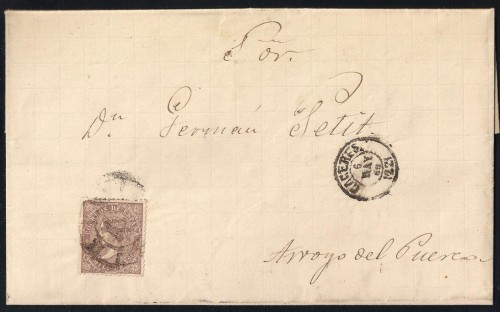 Sor.
Dn Germán Petit
CACERES
6
MAY
68
(22)
Arroyo del Puerco